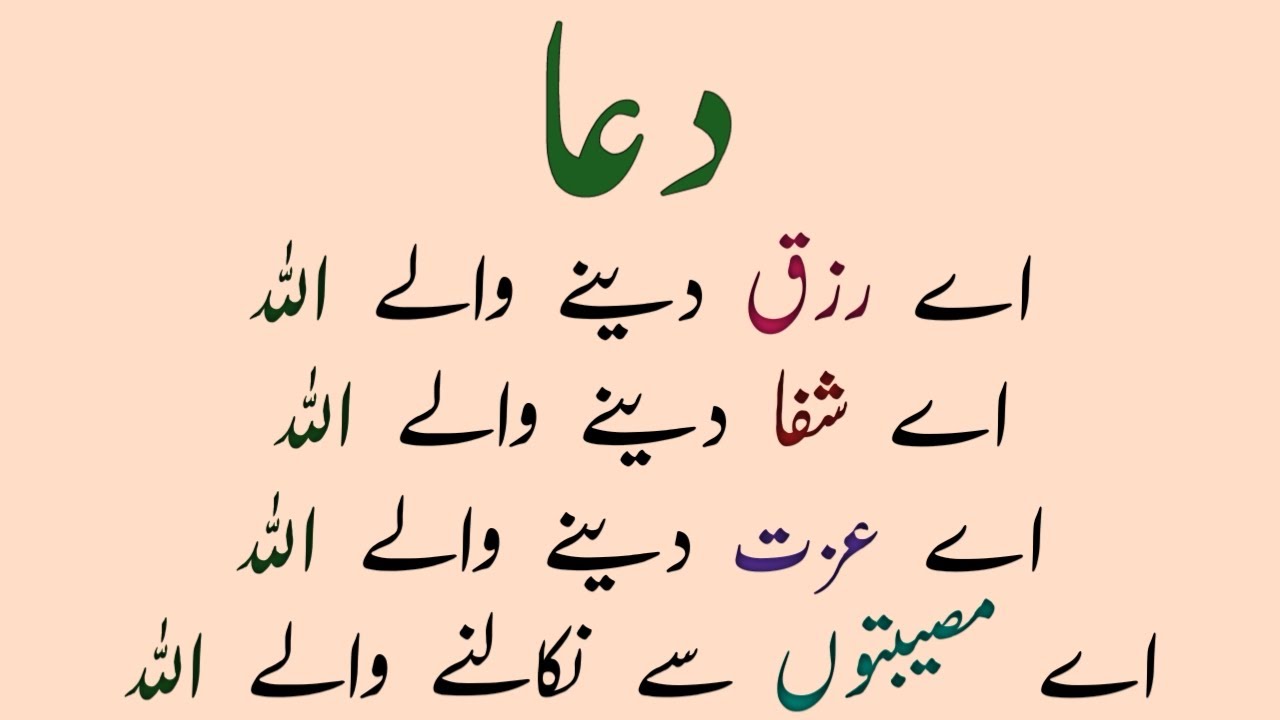 دعا
اے رزق دینے والے اللہ
اے شفا دینے والے اللہ
اے عزت دینے والے اللہ
اے مصیبتوں سے نکالنے والے اللہ